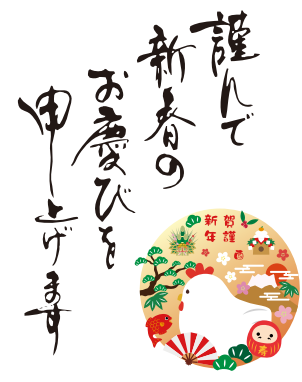 謹んで
新春の
お慶びを
申し上げます
謹賀
新年
寿